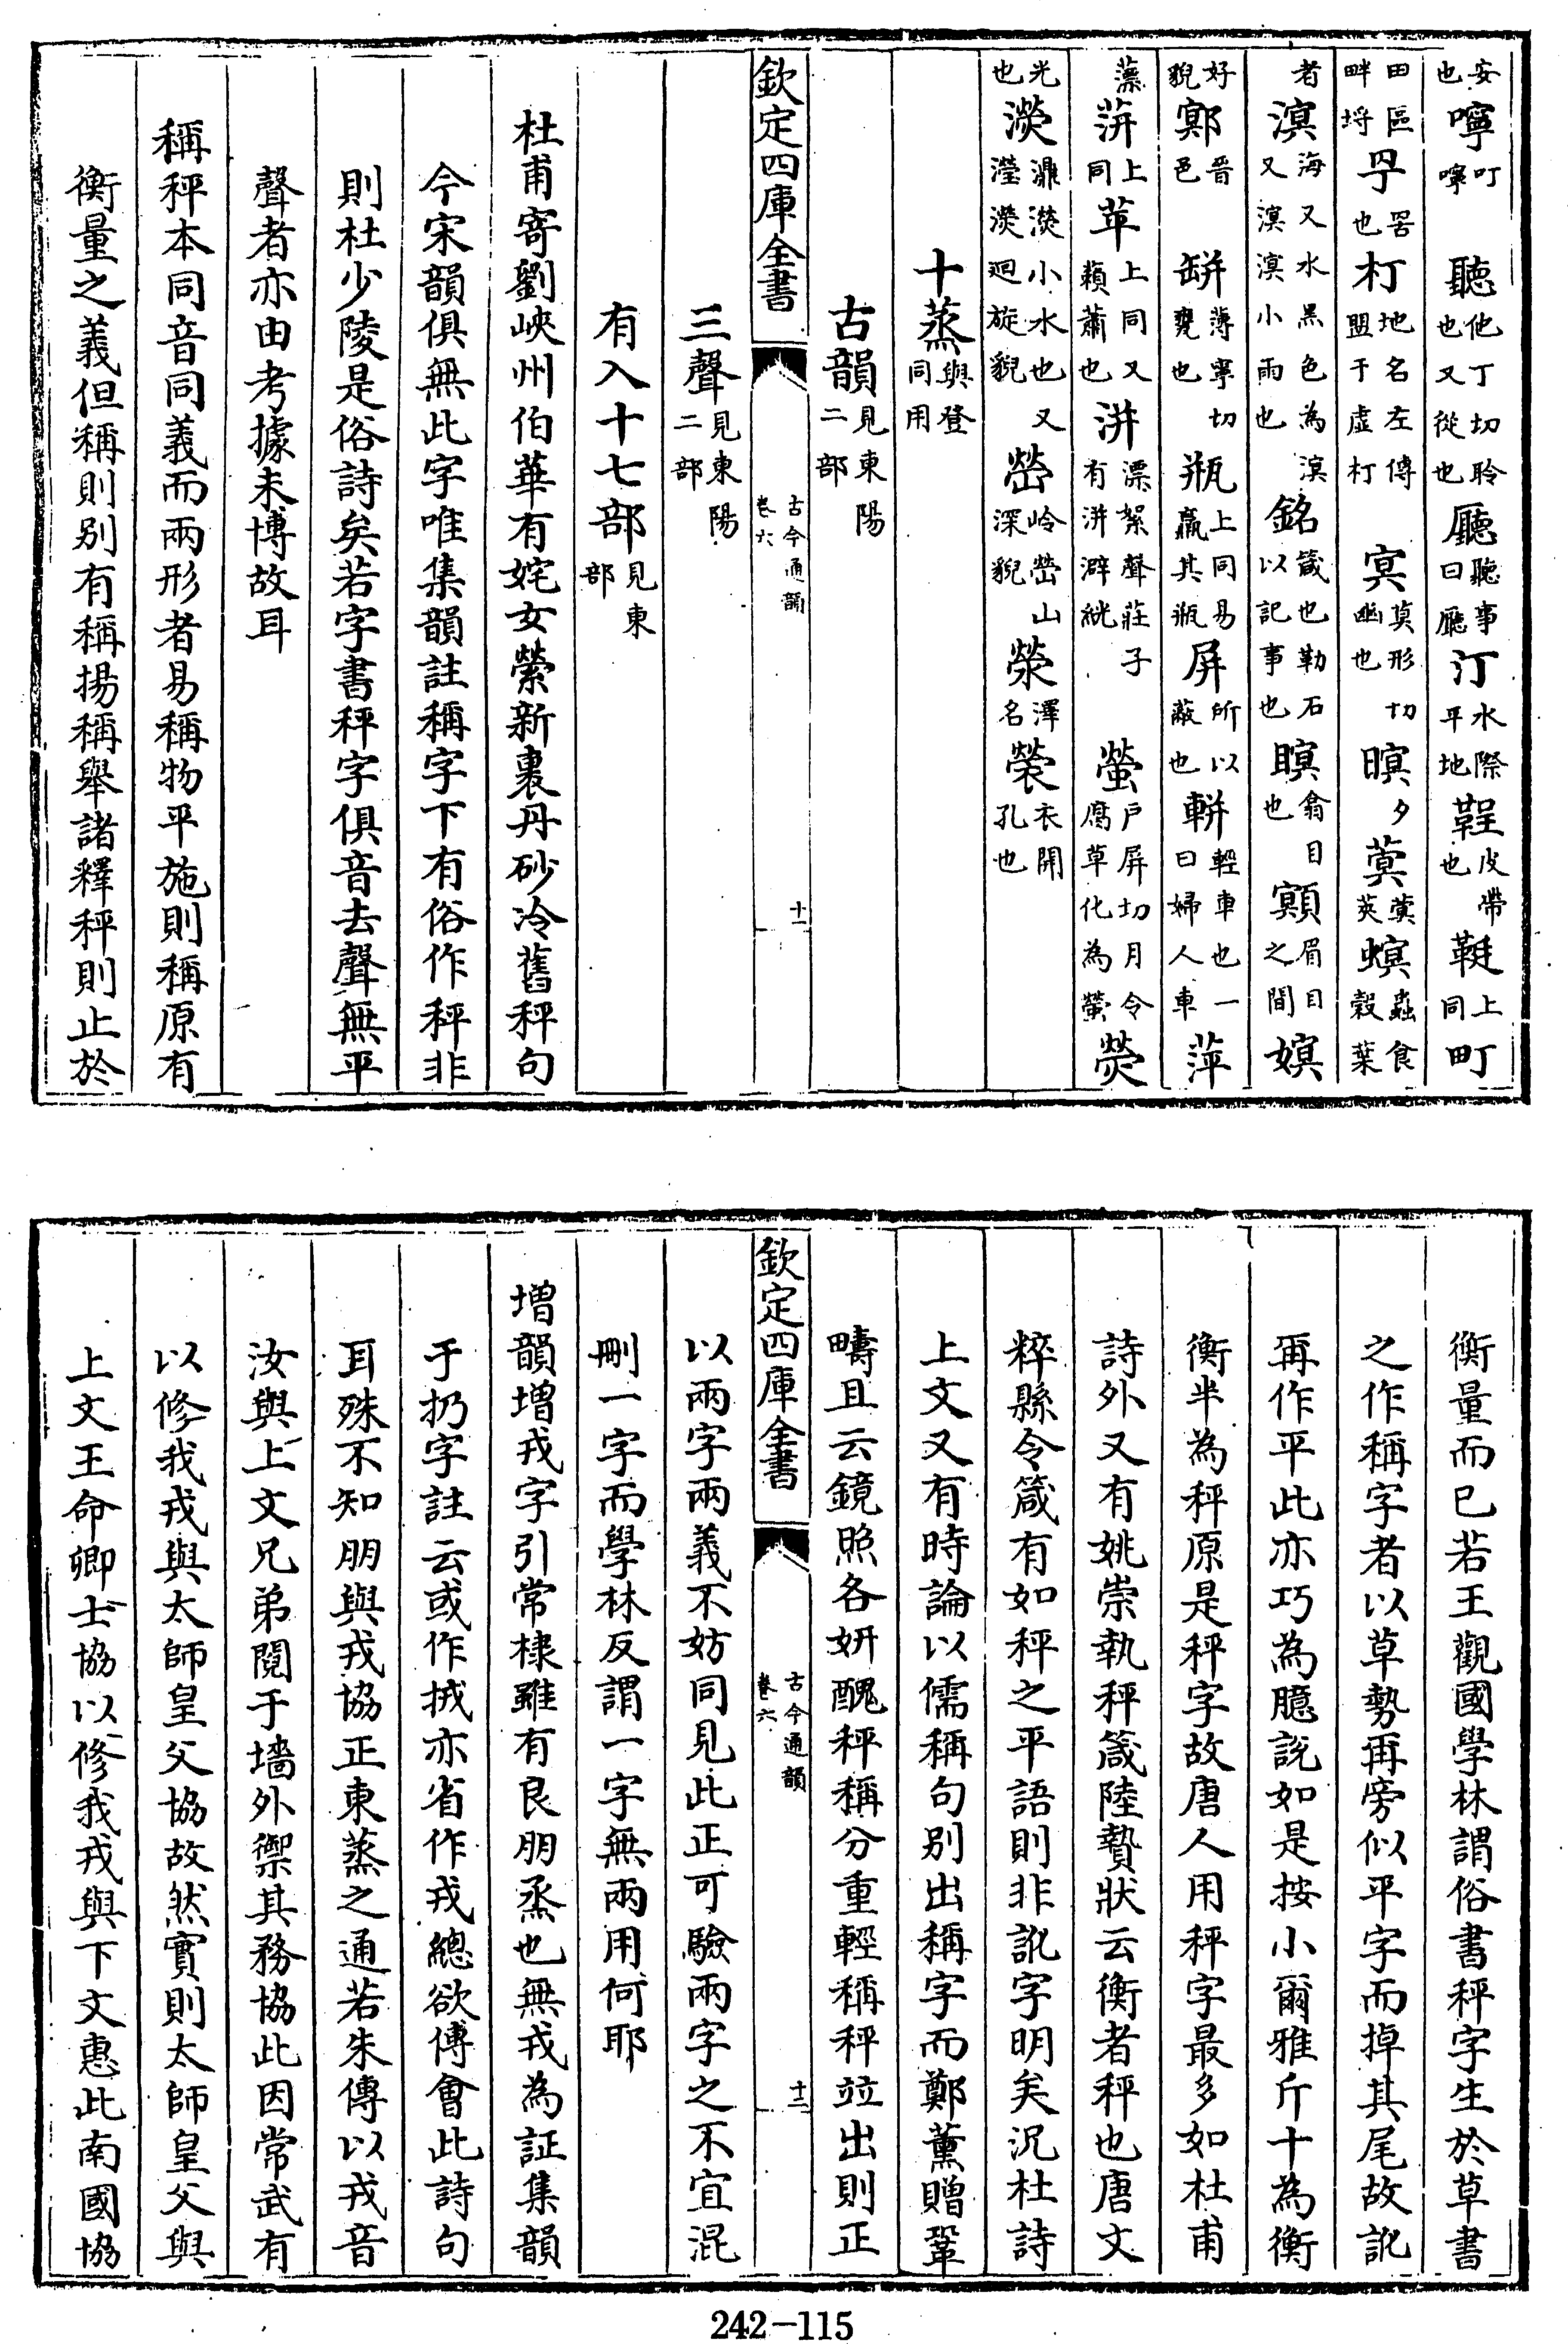 安也嚀叮嚀聽他丁切聆也又從也廳聽事曰廳汀水際平地鞓皮帶也鞋上同町
田區畔埒甼罟也朾地名左傳盟于虛朾㝠莫形切幽也暝夕蓂蓂莢螟蟲食穀葉
者溟海又水黑色為溟又溟溟小雨也銘箴也勒石以記事也瞑翕目也顭眉目之間嫇
好貌鄍晉邑缾薄寧切甖也瓶上同易羸其瓶屏所以蔽也軿輕車也一曰婦人車萍
薸蓱上同苹上同又藾蕭也洴漂絮聲莊子有洴澼絖螢戶扃切月令腐草化為螢熒
光也濙濎濙小水也又瀅濙迴旋貌嵤岭嵤山深貌滎澤名褮衣開孔也
十蒸與登同用
古韻見東陽二部
欽定四庫全書
古今通韻卷六
十一
三聲見東陽二部
有入十七部見東部
杜甫寄劉峽州伯華有姹女縈新裹丹砂冷舊秤句
今宋韻俱無此字唯集韻註稱字下有俗作秤非
則杜少陵是俗詩矣若字書秤字俱音去聲無平
聲者亦由考據未博故耳
稱秤本同音同義而兩形者易稱物平施則稱原有
衡量之義但稱則別有稱揚稱舉諸釋秤則止於
衡量而已若王觀國學林謂俗書秤字生於草書
之作稱字者以草勢再旁似平字而掉其尾故訛
再作平此亦巧為臆説如是按小爾雅斤十為衡
衡半為秤原是秤字故唐人用秤字最多如杜甫
詩外又有姚崇執秤箴陸贄狀云衡者秤也唐文
粹縣令箴有如秤之平語則非訛字明矣況杜詩
上文又有時論以儒稱句別出稱字而鄭薰贈鞏
疇且云鏡照各妍醜秤稱分重輕稱秤竝出則正
欽定四庫全書
古今通韻卷六
十二
以兩字兩義不妨同見此正可驗兩字之不宜混
刪一字而學林反謂一字無兩用何耶
增韻增戎字引常棣雖有良朋烝也無戎為証集韻
于扔字註云或作㧡亦省作戎總欲傅會此詩句
耳殊不知朋與戎協正東蒸之通若朱傳以戎音
汝與上文兄弟䦧于墻外禦其務協此因常武有
以修我戎與太師皇父協故然實則太師皇父與
上文王命卿士協以修我戎與下文惠此南國協
242-115